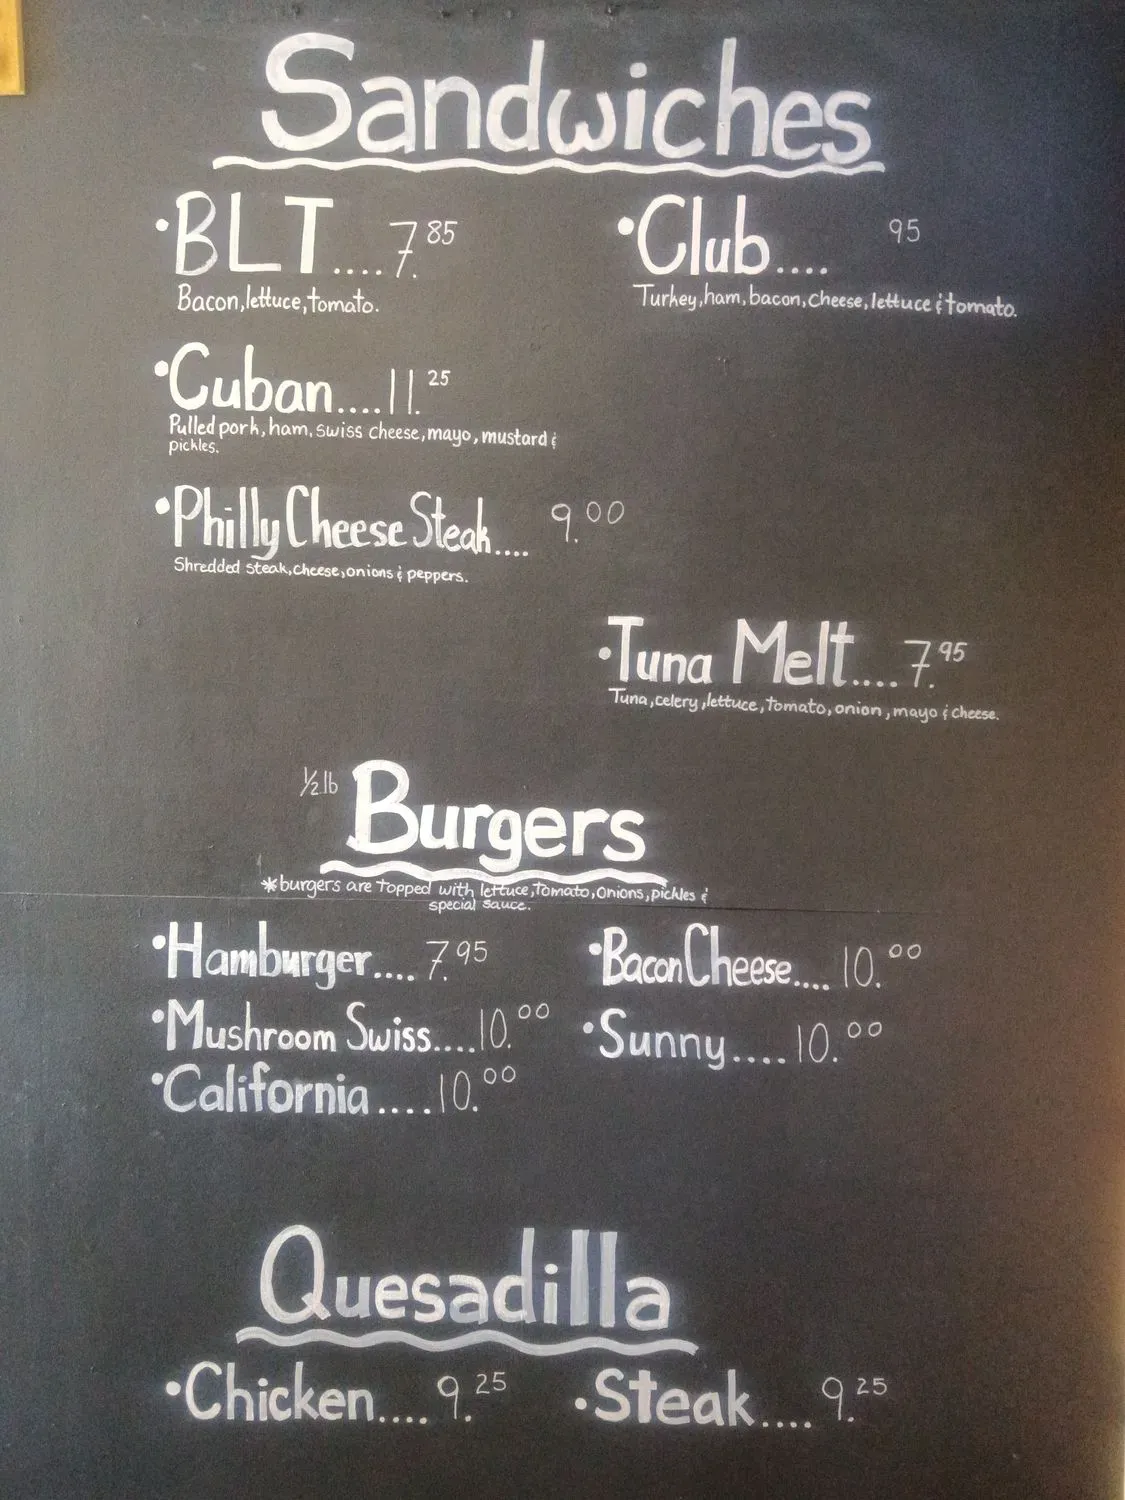 Sandwiches
•BLT....7.85
Bacon,lettuce,tomato.
•Club.... 95
Turkey,ham,bacon,cheese,lettuce & tomato.
•Cuban....11.25
Pulled pork,ham,swiss cheese,mayo,mustard &
pickles.
•Philly Cheese Steak.... 9.00
Shredded steak,cheese,onions & peppers.
•Tuna Melt....7.95
Tuna,celery,lettuce,tomato,onion,mayo & cheese.
½ lb Burgers
*burgers are topped with lettuce,tomato,onions,pickles &
special sauce.
•Hamburger.... 7.95
•Bacon Cheese.... 10.00
•Mushroom Swiss....10.00
•Sunny....10.00
•California....10.00
Quesadilla
•Chicken.... 9.25
•Steak.... 9.25